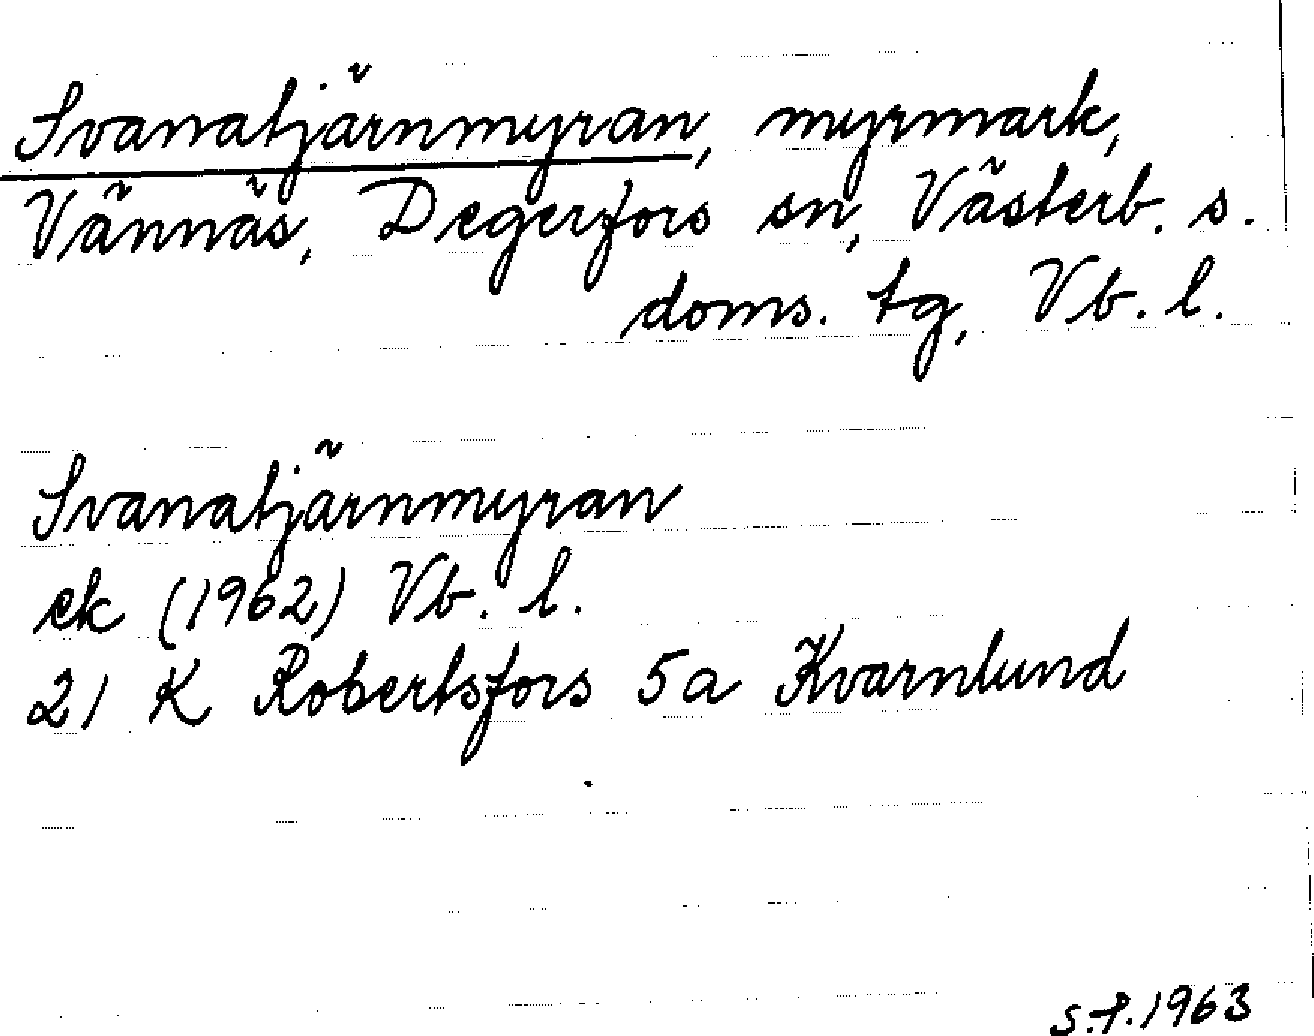 Svanatjärnmyran, myrmark,
Vännäs, Degerfors sn, Västerb. s.
doms. tg, Vb. l.
Svanatjärnmyran
ek (1962) Vb. l.
21 K Robertsfors 5a Kvarnlund
S.P. 1963